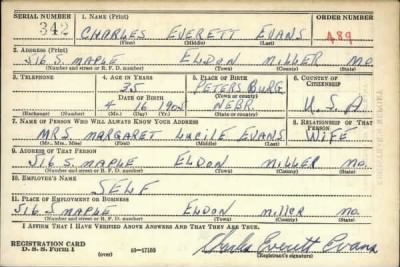 SERIAL NUMBER 1. NAME (Print) ORDER NUMBER
342 CHARLES EVERETT EVANS 489
(First) (Middle) (Last)
2. ADDRESS (Print)
516 S. MAPLE ELDON MILLER MO.
(Number and street or R. F. D. number) (Town) (County) (State)
3. TELEPHONE 4. AGE IN YEARS 5. PLACE OF BIRTH 6. COUNTRY OF CITIZENSHIP
35 PETERSBURG
DATE OF BIRTH (Town or county)
4 16 1905 NEBR. U.S.A
(Exchange) (Number) (Mo.) (Day) (Yr.) (State or country)
7. NAME OF PERSON WHO WILL ALWAYS KNOW YOUR ADDRESS 8. RELATIONSHIP OF THAT PERSON
MRS. MARGARET LUCILE EVANS WIFE
(Mr., Mrs., Miss) (First) (Middle) (Last)
9. ADDRESS OF THAT PERSON
516 S. MAPLE ELDON MILLER MO.
(Number and street or R. F. D. number) (Town) (County) (State)
10. EMPLOYER'S NAME
SELF
11. PLACE OF EMPLOYMENT OR BUSINESS
516 S MAPLE ELDON MILLER MO.
(Number and street or R. F. D. number) (Town) (County) (State)
I AFFIRM THAT I HAVE VERIFIED ABOVE ANSWERS AND THAT THEY ARE TRUE.
REGISTRATION CARD
D. S. S. Form 1 (over) 16—17105 Charles Everett Evans
(Registrant's signature)